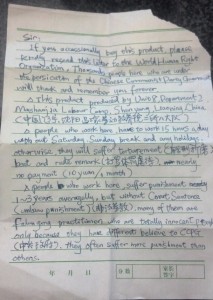 Sir:
If you occassionally buy this product, please
kindly resend this letter to the World Human Right
Organization. Thousands people here who are under
the persicution of the Chinese Communist Party Government
will thank and remember you forever.
This product produced by Unit 8, Department 2,
Masanjia Labour Camp, Shenyang, Liaoning, China
(中国,辽宁,沈阳,马三家
people who work here have to work 15 hours a day
with out Saturday, Sunday break and any holidays.
otherwise, they will suffer
but and rude remark nearly
no payment (10 yuan/1 month)
people who work here, suffer punishment nearly
1~3 years averagely, but without Court Sentence
(unlaw punishment) many of them are
Falun gong practitioner, who are totally innocent people
only because they have different believe to CCPG
they often suffer more punishment than
others.
年 月 日